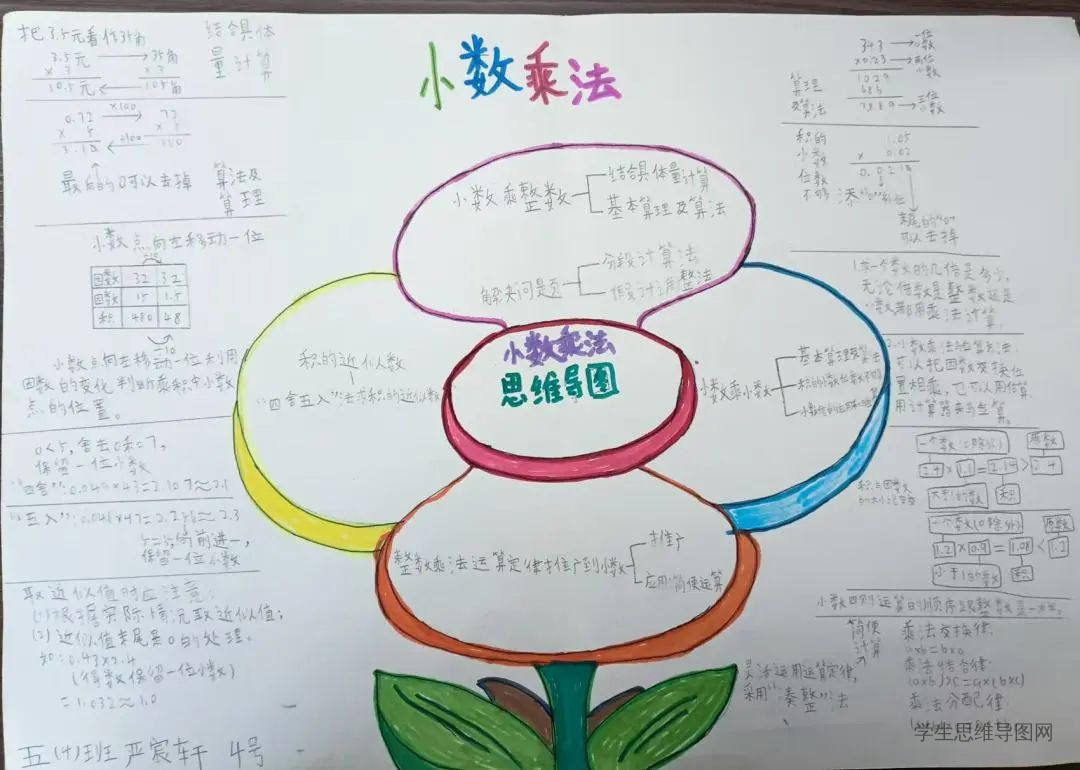 小数乘法
把3.5元看作35角
结合具体
量计算
3.5元 → 35角
× 3 × 3
10.5元 ← 105角
×100
0.72 → 72
× 5 × 5
3.60 ← 360
÷100
最后的0可以去掉
算法及
算理
小数点向左移动一位
因数 32 3.2
因数 15 1.5
积 480 48
÷10
小数点向左移动一位利用
因数的变化判断乘积中小数
点的位置。
保留一位小数
"四舍":0.049×43=2.107≈2.1
≈2.3
向前进一,
保留一位小数
取近似值时应注意:
(1)根据实际情况取近似值;
(2)近似值末尾是0的处理。
如:0.43×2.4
(得数保留一位小数)
=1.032≈1.0
五(十)班 严宸轩 4号
小数乘整数
结合具体量计算
基本算理及算法
解决问题
分段计算法
积的近似数
"四舍五入"法求积的近似数
小数乘法
思维导图
小数乘小数
基本算理及算法
整数乘法运算定律推广到小数
推广
应用:简便运算
343 → 一位小数
×0.23 → 两位小数
1029
686
7889 → 三位小数
算理
及算法
积的
小数
位数
不够
1.05
× 0.02
0.0210
添"0"补位
末尾的"0"
可以去掉
1.求一个数的几倍是多少,
无论倍数是整数还是
小数都用乘法计算.
可以把因数交换位
置相乘,也可以用估算
一个数(0除外)
原数
2.4 × 1.1 = 2.64 > 2.4
大于1的数
积
一个数(0除外)
原数
1.2 × 0.9 = 1.08 < 1.2
小于1的数
积
小数四则运算的顺序跟整数是一样的。
简便
计算
乘法交换律
a×b=b×a
乘法结合律
(a×b)×c=a×(b×c)
乘法分配律
灵活运用运算定律,
采用"凑整"法
学生思维导图网